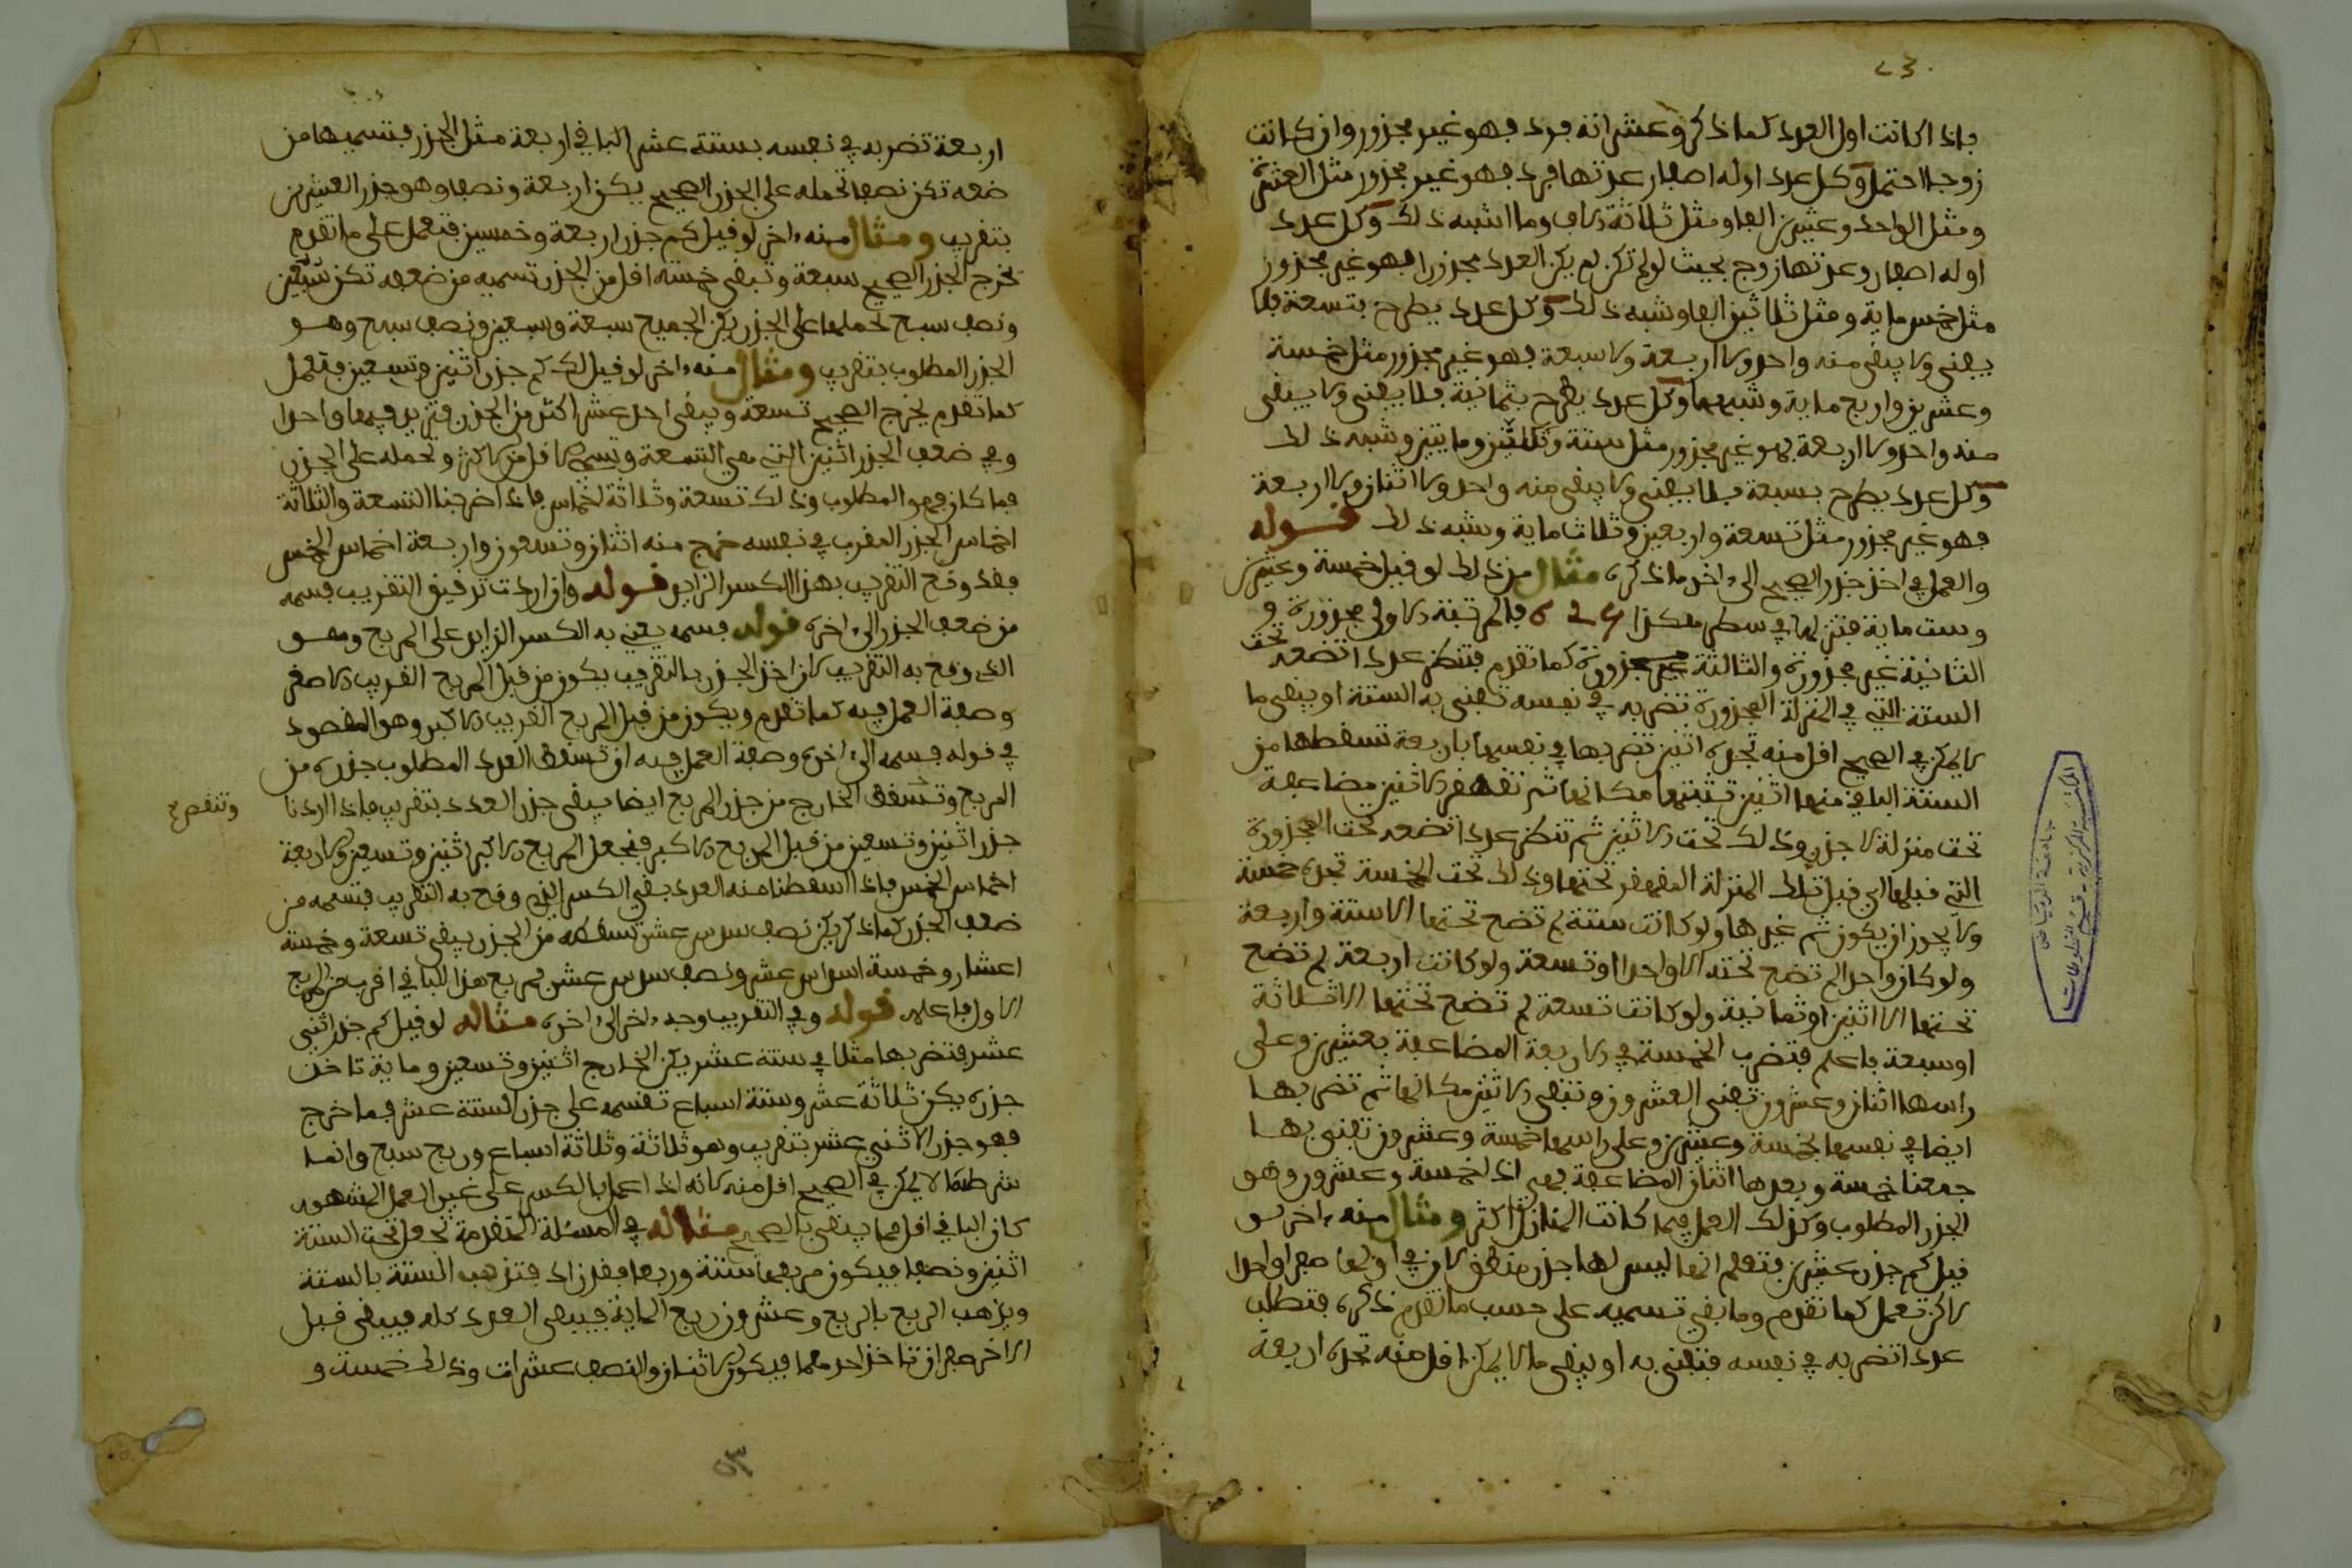 ٤٣
فإذا كانت اول العدد كما ذكر وعشراته فرد فهو غير مجذور وان كانت
زوجا احتمل وكل عدد اوله اصفار عدتها فرد فهو غير مجذور مثل العشرة
ومثل الواحد وعشرين الفا ومثل ثلاثة الاف وما اشبه ذلك وكل عدد
اوله اصفار وعدتها زوج بحيث لو لم تكن لم يكن العدد مجذورا فهو غير مجذور
مثل خمس ماية ومثل ثلاثين الفا وشبه ذلك وكل عدد يطرح بتسعة فلا
يفنى ولا يبقى منه واحد ولا اربعة ولا سبعة فهو غير مجذور مثل خمسة
وعشرين واربع ماية وشبهها وكل عدد يطرح بثمانية فلا يفنى ولا يبقى
منه واحد ولا اربعة فهو غير مجذور مثل ستة وثلاثين وما يتين وشبه ذلك
وكل عدد يطرح بسبعة فلا يفنى ولا يبقى منه واحد ولا اثنان ولا اربعة
فهو غير مجذور مثل تسعة واربعين وثلاث ماية وشبه ذلك قوله
والعمل في اخذ جذر الصحيح الى ءاخر ما ذكره مثال من ذلك لو قيل خمسة وعشرين
وست ماية فتنزلها في سطر هكذا 625 فالمرتبة الاولى مجذورة و
الثانية غير مجذورة والثالثة مجذورة كما تقدم فتنظر عددا تضعه تحت
الستة التي في المنزلة المجذورة تضربه في نفسه تفنى به الستة او يبقى ما
لا يمكن في الصحيح اقل منه تجده اثنين تضربها في نفسها باربعة تسقطها من
الستة الباقي منها اثنين تثبتها مكانها ثم تقهقر الاثنين مضاعفة
تحت منزلة لا جذر وذلك تحت الاثنين ثم تنظر عددا تضعه تحت المجذورة
التي قبلها اي قبل تلك المنزلة المقهقر تحتها وذلك تحت الخمسة تجده خمسة
ولا يجوز ان يكون ثم غيرها ولو كانت ستة لم تضح تحتها الا ستة واربعة
ولو كان واحدا لم تضع تحته الا واحدا او تسعة ولو كانت اربعة لم تضع
تحتها الا اثنين او ثمانية ولو كانت تسعة لم تضع تحتها الا ثلاثة
او سبعة فاعلم فتضرب الخمسة في الاربعة المضاعفة بعشرين وعلى
راسها اثنان وعشرون تفنى العشرون وتبقى الاثنين مكانها ثم تضربها
ايضا في نفسها بخمسة وعشرين وعلى راسها خمسة وعشرون تفنى بها
جمعنا خمسة وبعدها اثنان المضاعفة فهي اذا خمسة وعشرون وهو
الجذر المطلوب وكذلك العمل فيما كانت المنازل اكثر ومثال منه ءاخر لو
قيل كم جذر عشرين فتعلم انها ليس لها جذر منطق لان في اولها صفرا واحدا
لاكن تعمل كما تقدم وما بقي تسميه على حسب ما تقدم ذكره فتطلب
عددا تضربه في نفسه فتفنى به او يبقى ما لا يمكن اقل منه تجده اربعة
اربعة تضربه في نفسه بستة عشر الباقي اربعة مثل الجذر فتسميها من
ضعفه تكن نصفا تحمله على الجذر الصحيح يكن اربعة ونصفا وهو جذر العشرين
بتقريب ومثال منه ءاخر لو قيل كم جذر اربعة وخمسين فتعمل على ما تقدم
يخرج الجذر الصحيح سبعة وتبقى خمسة اقل من الجذر تسميه من ضعفه تكن سبعين
ونصف سبع تحملها على الجذر يكن الجميع سبعة وسبعين ونصف سبع وهو
الجذر المطلوب بتقريب ومثال منه ءاخر لو قيل لك كم جذر اثنين وتسعين فتعمل
كما تقدم يخرج الصحيح تسعة ويبقى احد عشر اكثر من الجذر فتزيد فيها واحدا
وفي ضعف الجذر اثنين التي هي التسعة وتسمي الاقل من الاكثر وتحمله على الجذر
فما كان فهو المطلوب وذلك تسعة وثلاثة اخماس فاذا ضربنا التسعة والثلاثة
اخماس الجذر المقرب في نفسه خرج منه اثنان وتسعون واربعة اخماس الخمس
فقد وقع التقريب بهذا الكسر الزايد قوله وان اردت ترقيق التقريب فسمه
من ضعف الجذر الى ءاخره قوله فسمه يعني به الكسر الزايد على المربع وهو
الذي وقع به التقريب لان اخذ الجذر بالتقريب يكون من قبل المربع القريب الاصغر
وصفة العمل فيه كما تقدم ويكون من قبل المربع القريب الاكبر وهو المقصود
في قوله فسمه الى ءاخره وصفة العمل فيه ان تسقط العدد المطلوب جذره من
المربع وتسقط الخارج من جذر المربع ايضا يبقى جذر العدد بتقريب فاذا اردنا
وتنقص
جذر اثنين وتسعين من قبل المربع الاكبر فنجعل المربع الاكبر اثنين وتسعين واربعة
اخماس الخمس فاذا اسقطنا منه العدد بقي الكسر الذي وقع به التقريب فتسميه من
ضعف الجذر كما ذكر يكن نصف سدس عشر تسقطه من الجذر يبقى تسعة وخمسة
اعشار وخمسة اسداس عشر ونصف سدس عشر فمربع هذا الباقي اقرب من المربع
الاول فاعلم قوله وفي التقريب وجه ءاخر الى ءاخره مثاله لو قيل كم جذر اثني
عشر فتضربها مثلا في ستة عشر يكن الخارج اثنين وتسعين وماية تاخذ
جذره يكن ثلاثة عشر وستة اسباع تقسمه على جذر الستة عشر فما خرج
فهو جذر الاثني عشر بتقريب وهو ثلاثة وثلاثة اسباع وربع سبع وانما
شرطنا لا يمكن في الصحيح اقل منه لانه اذا عمل بالكسر على غير العمل المشهور
كان الباقي اقل مما يبقى بالصحيح مثاله في المسئلة المتقدمة تجعل تحت الستة
اثنين ونصفا فيكون مربعها ستة وربعا فقد زاد فتذهب الستة بالستة
ويذهب الربع بالربع وعشرون ربع الماية فيبقى العدد كله فيبقى قبل
الاخر صفرا ان تاخذ احدهما فيكون الاثنان والنصف عشرات وذلك خمسة و
٥٣